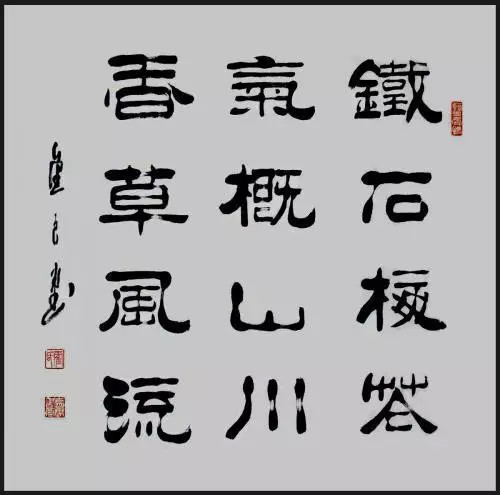 鐵石梅花
氣概山川
香草風流